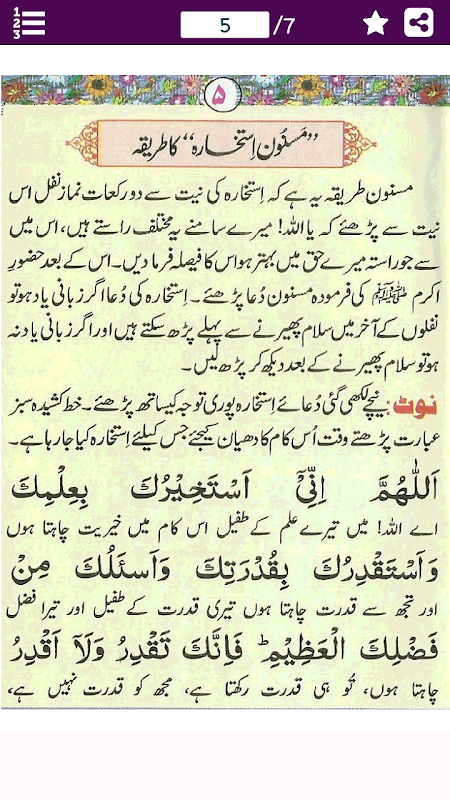 1
2
3
5 /7
۵
”مَسنُون اِستخارہ“ کا طریقہ
مسنون طریقہ یہ ہے کہ اِستخارہ کی نیت سے دو رکعات نماز نفل اس
نیت سے پڑھئے کہ یا اللہ! میرے سامنے یہ مختلف راستے ہیں، اس میں
سے جو راستہ میرے حق میں بہتر ہو اس کا فیصلہ فرما دیں۔ اس کے بعد حضورِ
اکرم ﷺ کی فرمودہ مسنون دُعا پڑھئے۔ اِستخارہ کی دُعا اگر زبانی یاد ہو تو
نفلوں کے آخر میں سلام پھیرنے سے پہلے پڑھ سکتے ہیں اور اگر زبانی یاد نہ
ہو تو سلام پھیرنے کے بعد دیکھ کر پڑھ لیں۔
نوٹ: نیچے لکھی گئی دُعائے اِستخارہ پوری توجہ کیساتھ پڑھئے۔ خط کشیدہ سبز
عبارت پڑھتے وقت اُس کام کا دھیان کیجئے جس کیلئے اِستخارہ کیا جا رہا ہے۔
اَللّٰهُمَّ اِنِّیْۤ اَسْتَخِیْرُكَ بِعِلْمِكَ
اے اللہ! میں تیرے علم کے طفیل اس کام میں خیریت چاہتا ہوں
وَاَسْتَقْدِرُكَ بِقُدْرَتِكَ وَاَسئَلُكَ مِنْ
اور تجھ سے قدرت چاہتا ہوں تیری قدرت کے طفیل اور تیرا فضل
فَضْلِكَ الْعَظِیْمِ ؕ فَاِنَّكَ تَقْدِرُ وَلَاۤ اَقْدِرُ
چاہتا ہوں، تُو ہی قدرت رکھتا ہے، مجھ کو قدرت نہیں ہے،